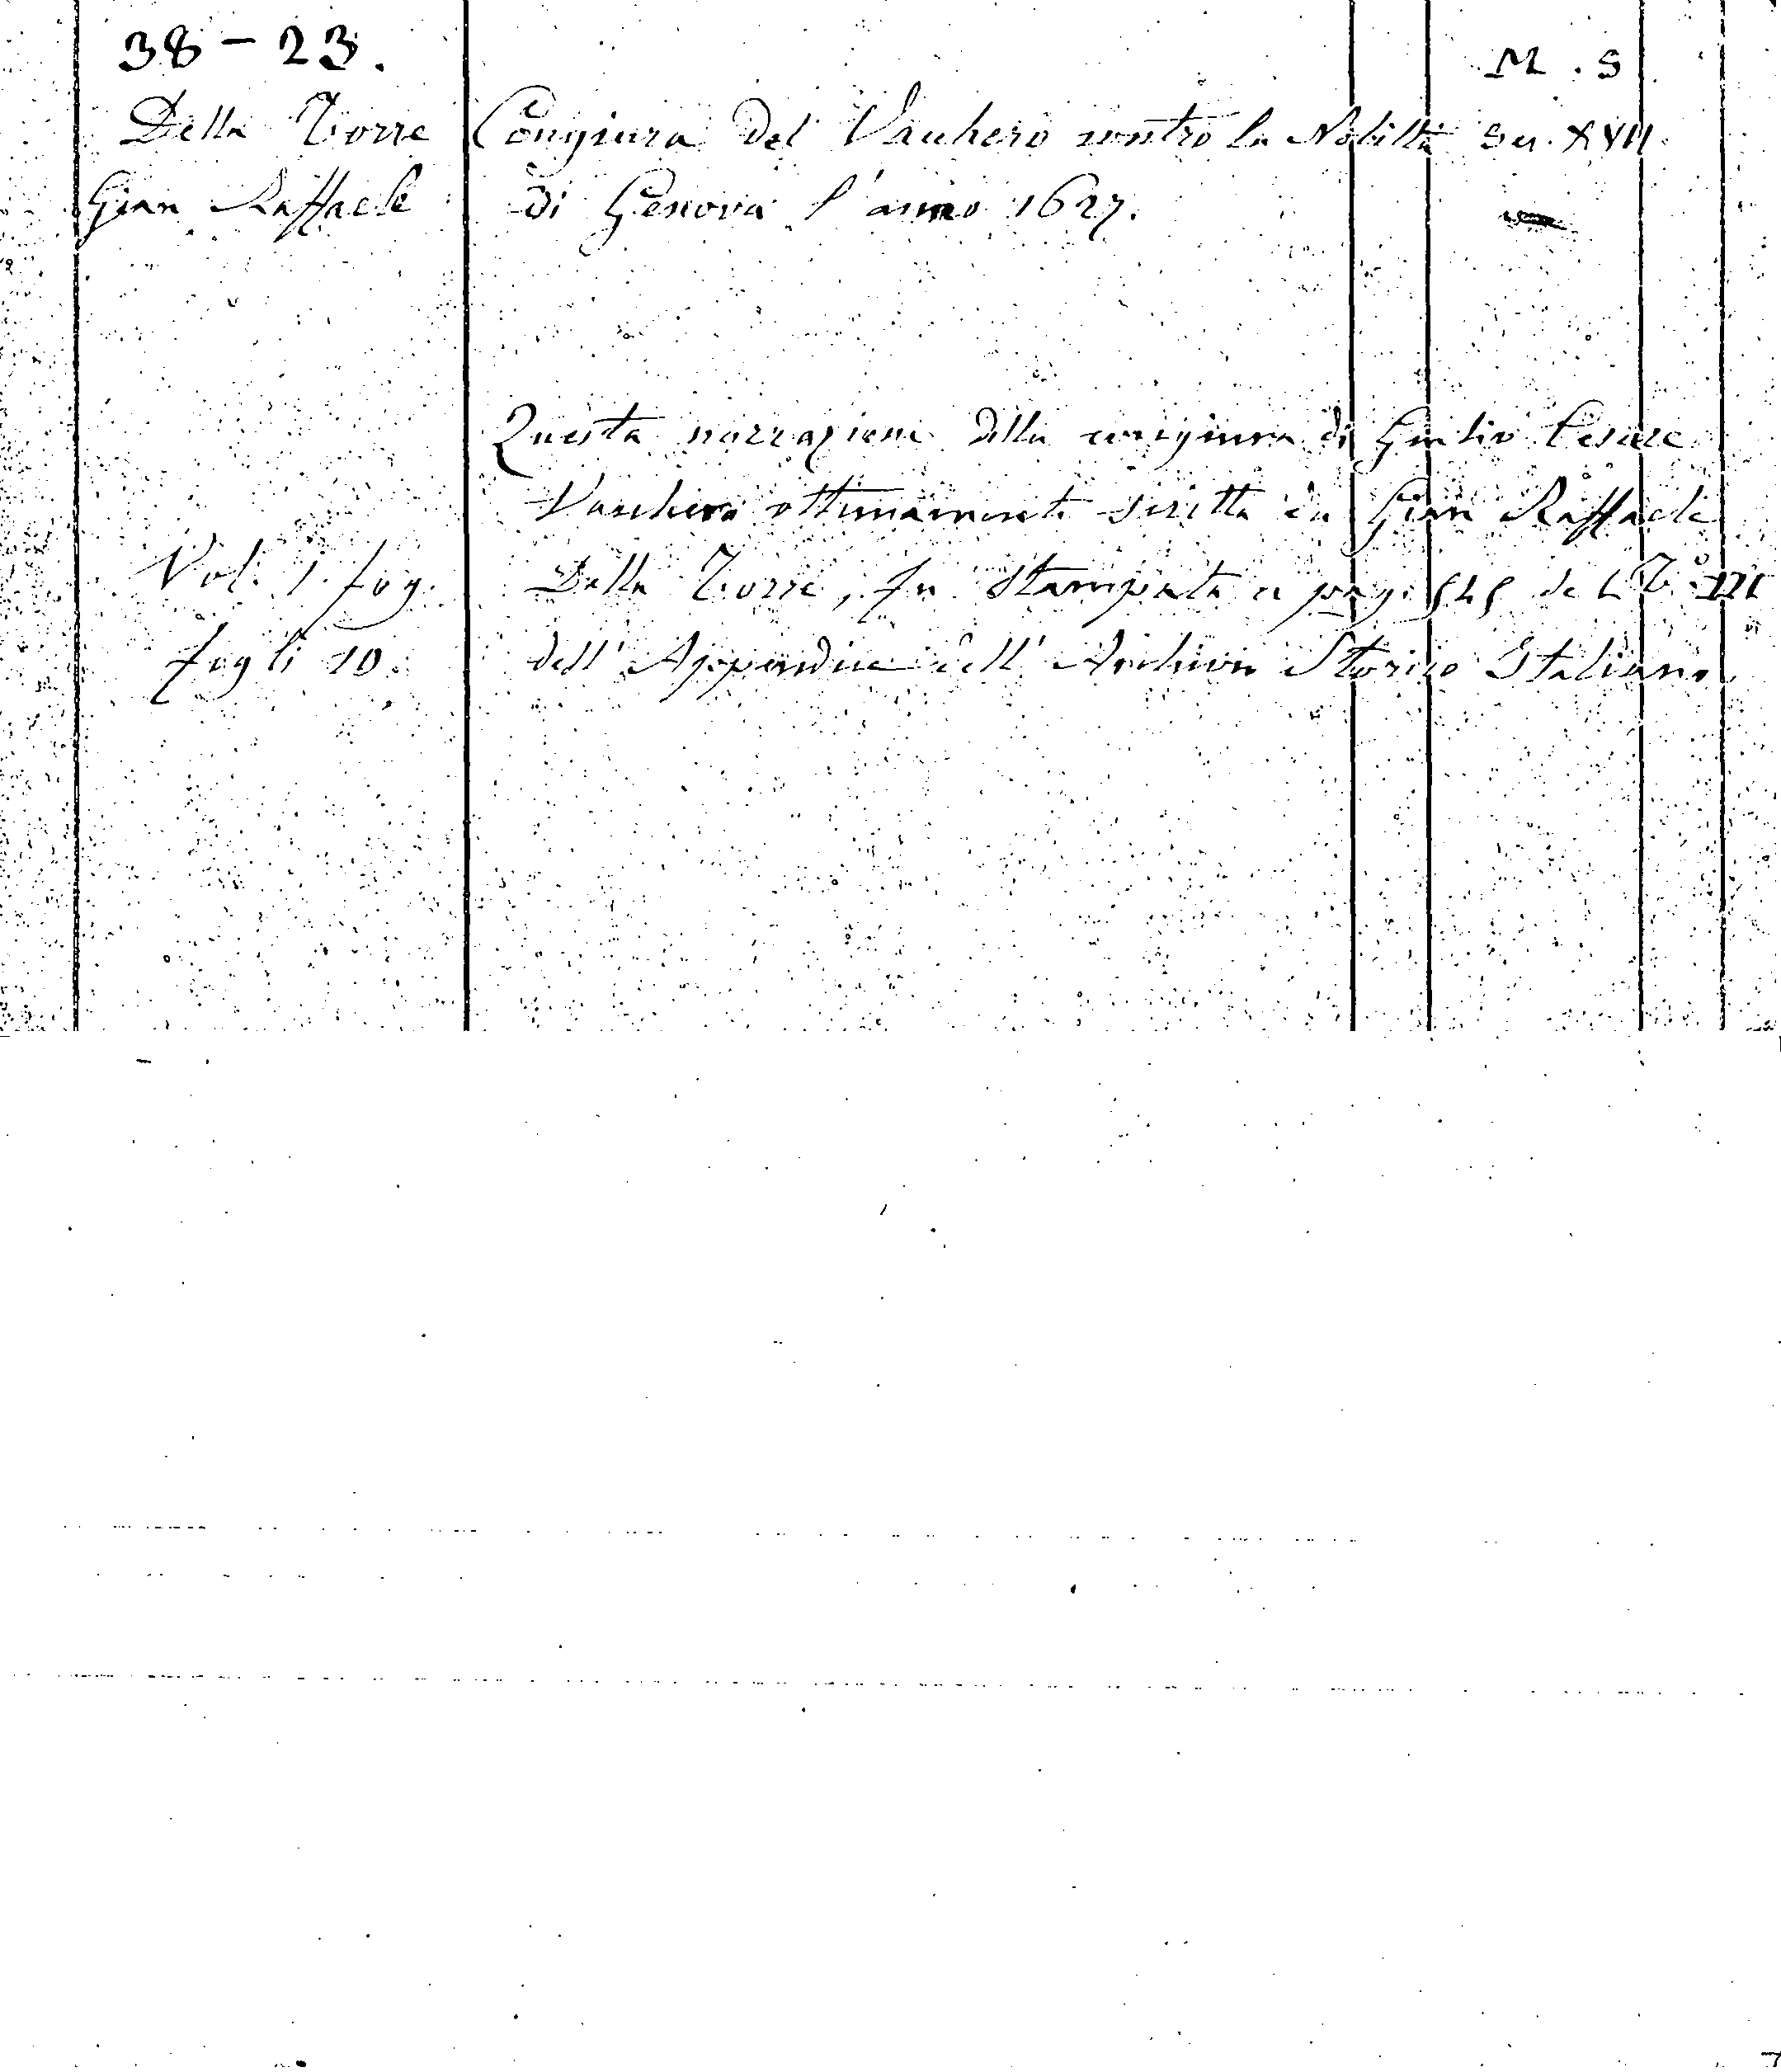 38 - 23.
M. S
Della Torre Congiura del Vachero contro la Nobiltà Sec. XVII.
Gian Raffaele di Genova l'anno 1627.
Questa narrazione della congiura di Giulio Cesare
Vachero ottimamente scritta da Gian Raffaele
Vol. 1. fog. Della Torre, fu stampata a pag. 545 del T.° III
fogli 10. dell'Appendice dell'Archivio Storico Italiano